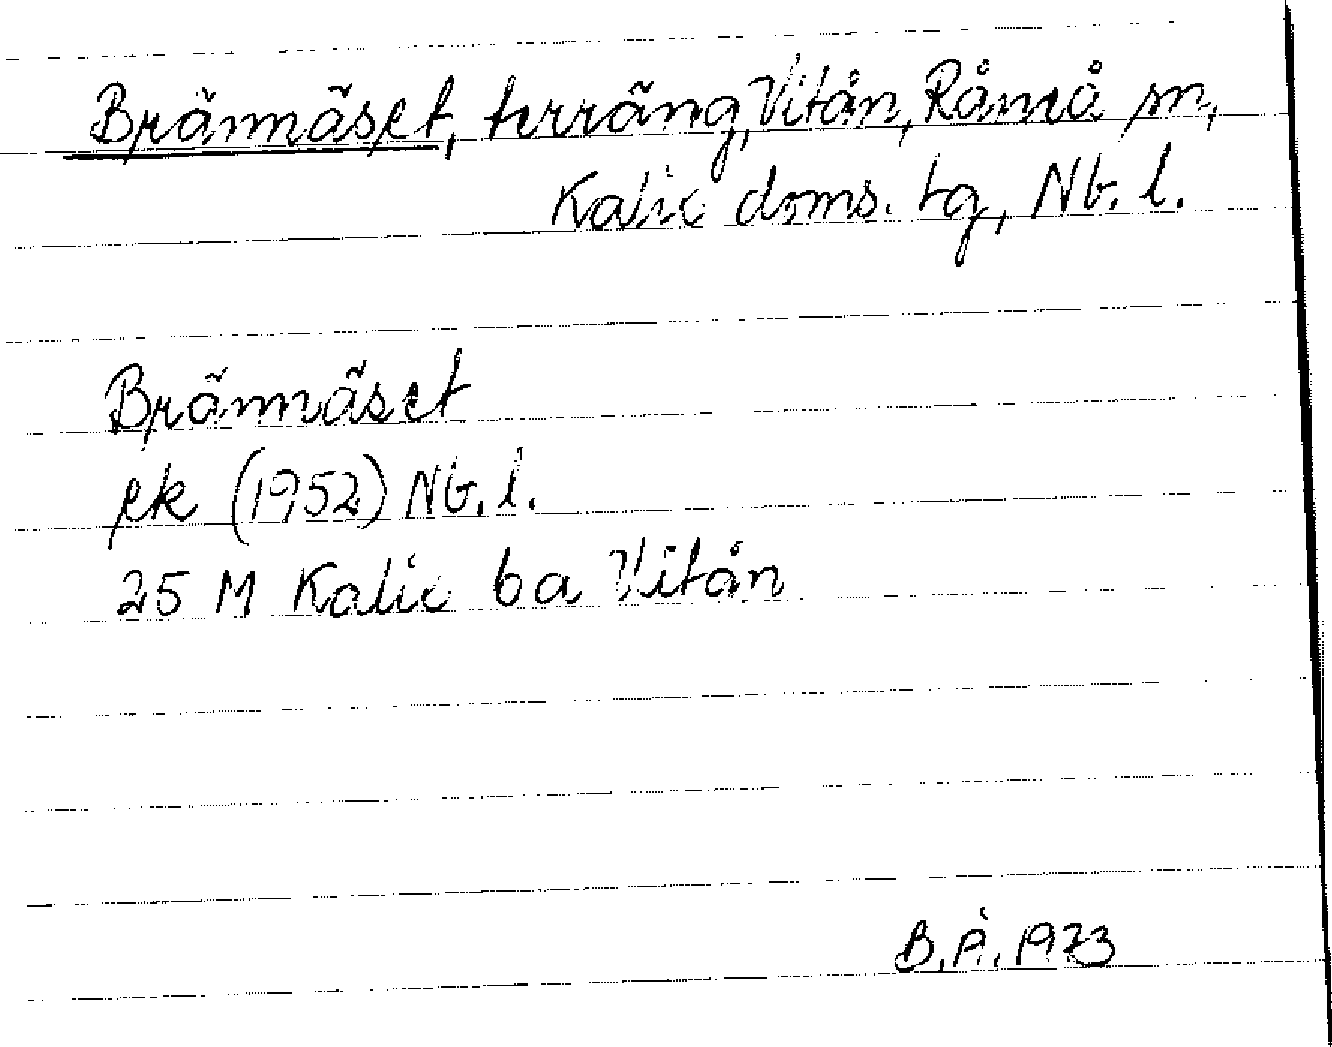 Brännäset, terräng, Vitån, Råneå sn,
Kalix doms. tg, Nb. l.
Brännäset
ek (1952) Nb. l.
25 M Kalix 6a Vitån
B.Å. 1973